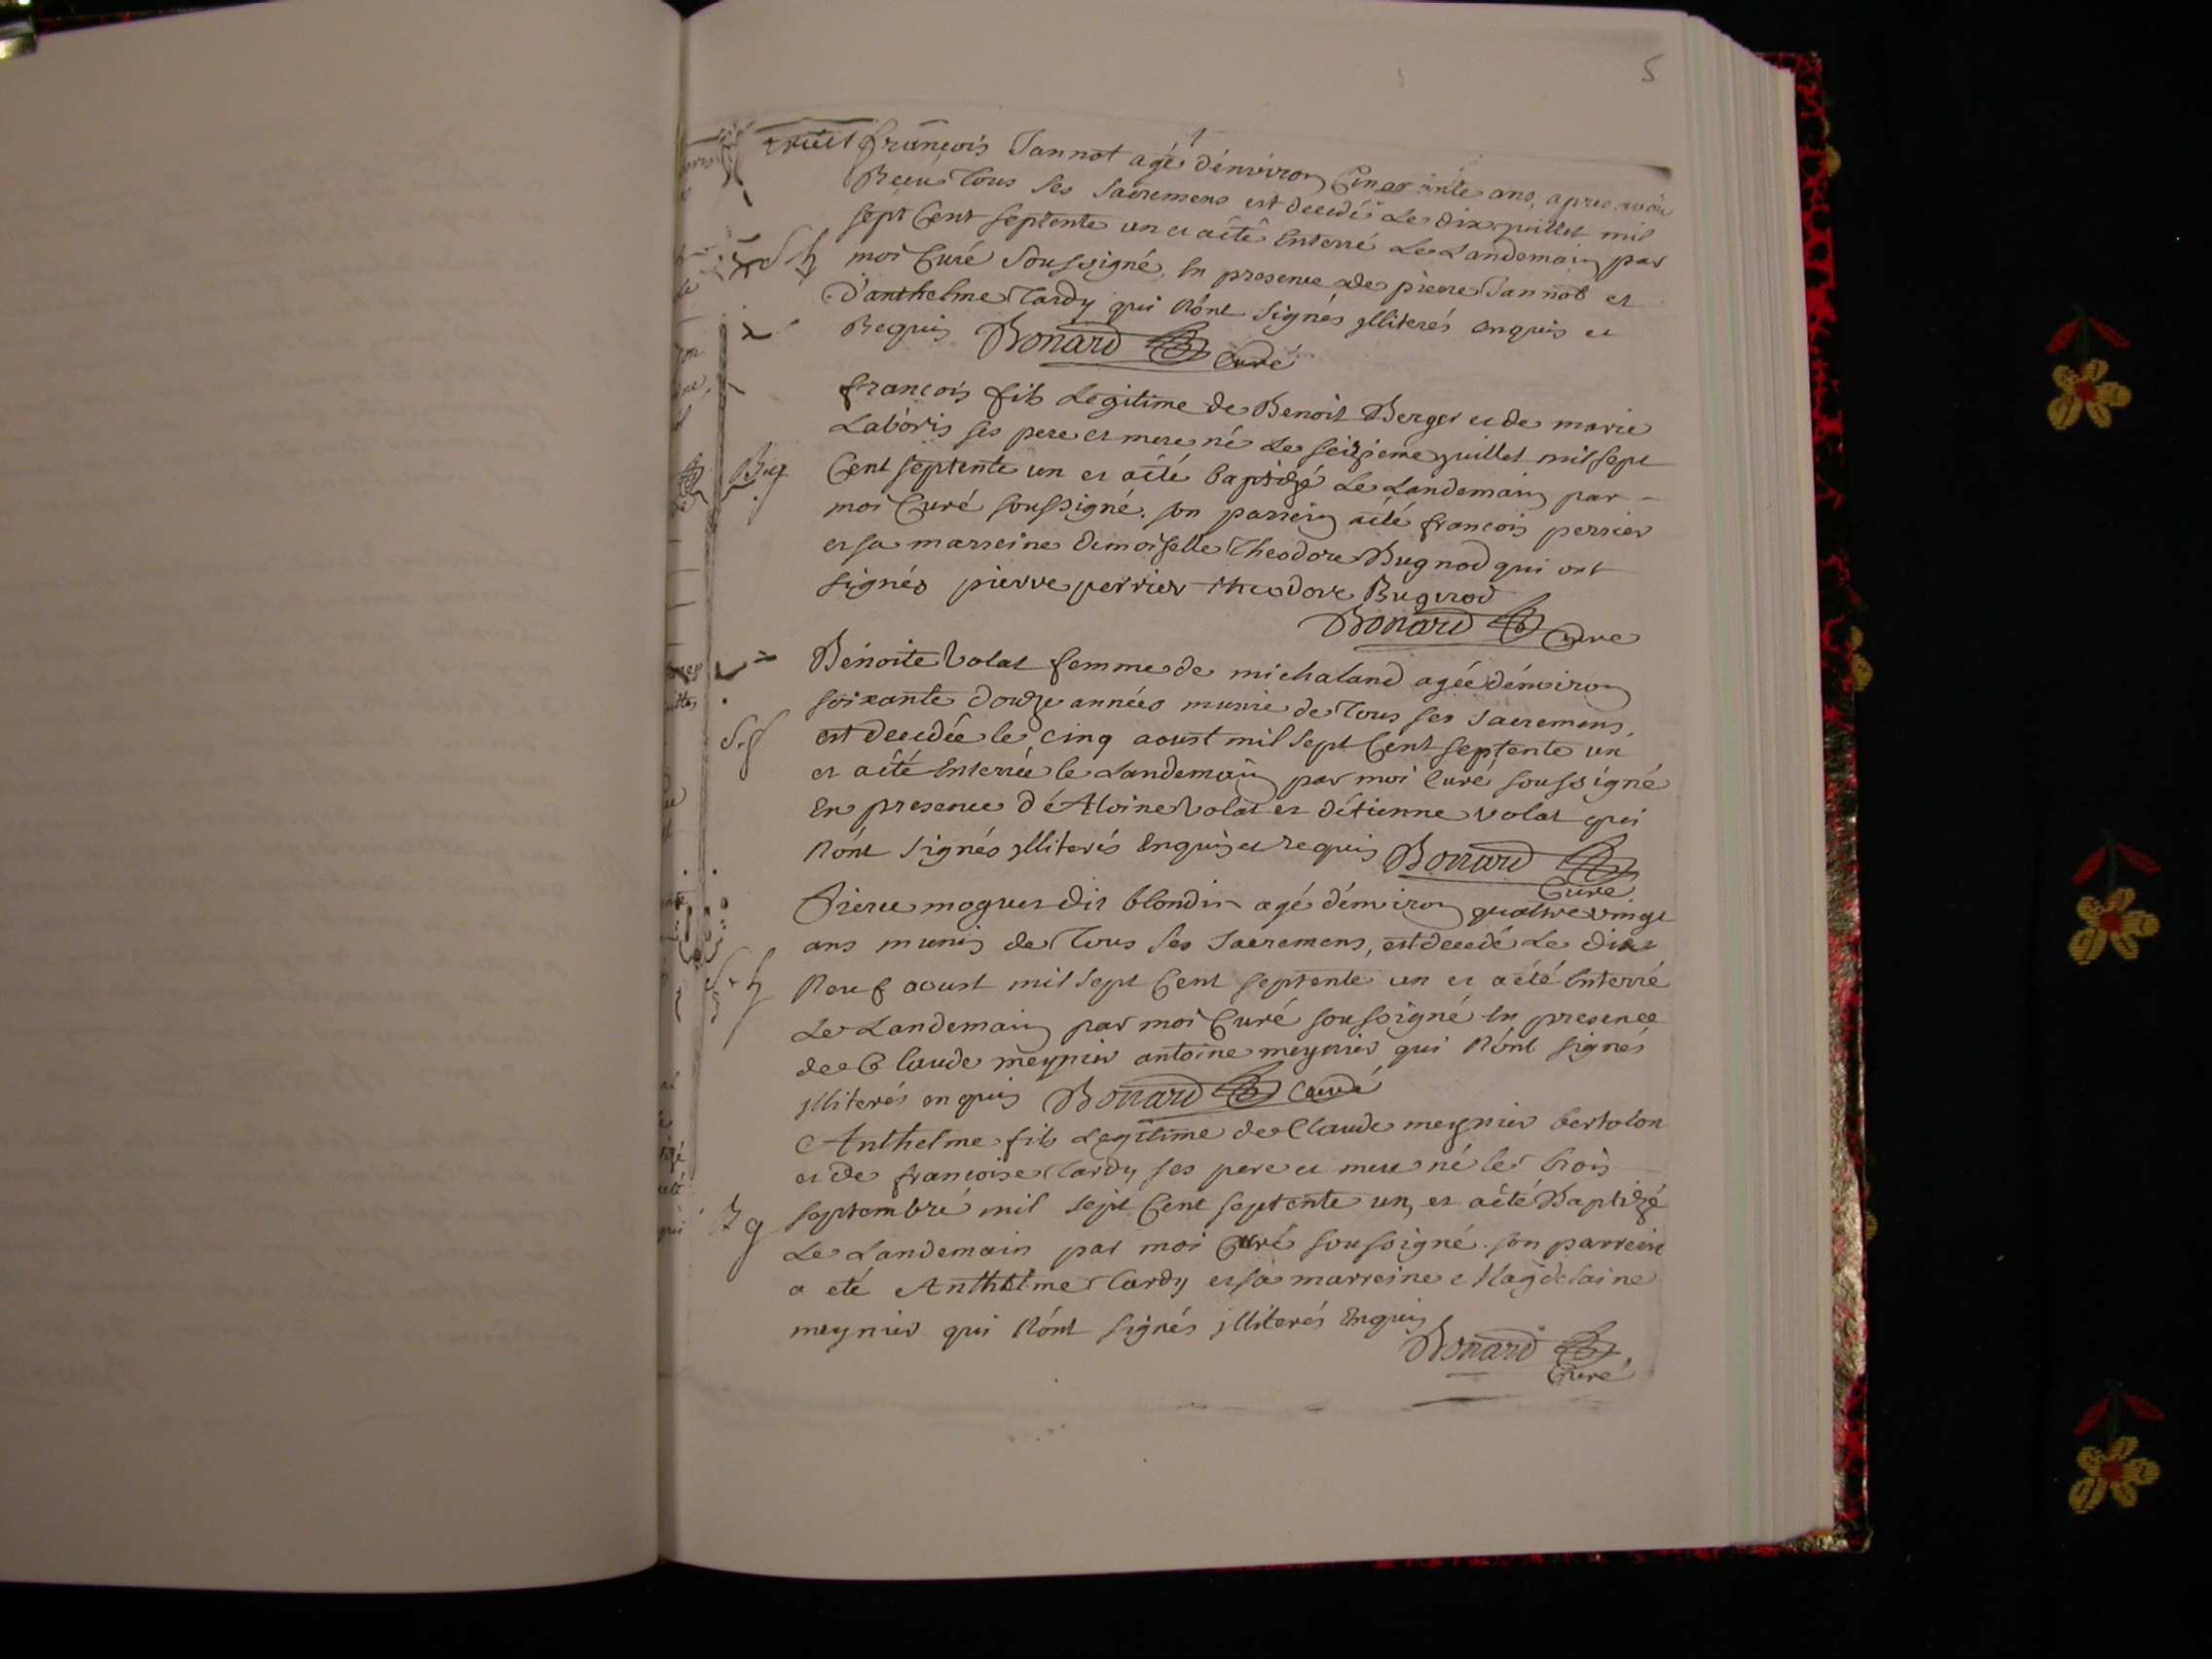 5
françois Jannot agé d'énviron Cinquante ans, apres avoir
Reçeu Tous ses Sacremens est decedé Le dix juillet mil
sept Cent septente un et aété Enterré Le Landemain par
S h moi Curé Soussigné, En presence de pierre Jannot et
d'anthelme Tardy qui Nónt Signés jlliterés enquis et
Requis Bonard Curé
françois fils Legitime de Benoit Berger et de marie
Labóris ses pere et mere né Le seizieme juillet mil sept
Cent septente un et aété baptizé Le Landemain par
moi Curé soussigné. son parrein aété françois perrier
et sa marreine demoiselle Theodore Bugnod qui ont
signés pierre perrier theodore Bugnod
Bonard Curé
Bénoite Volat femme de michaland agée d'énviron
soixante douze années munie de Tous ses Sacremens,
est decedée le cinq aoust mil sept Cent septente un
et aété Enterrée le Landemain par moi Curé soussigné
En presence d'é Aloine Volat et d'étienne Volat qui
Nónt Signés jlliterés Enquis et requis Bonard
Curé
Pierre moguet dit blondin agé d'énviron quatrevingt
ans munis de Tous ses Sacremens, est decedé Le dix
S h Neuf aoust mil sept Cent septente un et aété Enterré
Le Landemain par moi Curé soussigné En presence
de Claude meynier antoine meynier qui Nónt signés
jlliterés enquis Bonard Curé
Anthelme fils Legitime de Claude meynier bertolon
et de françoise Tardy ses pere et mere né le trois
septembre mil sept Cent septente un, et aété Baptizé
Le Landemain par moi Curé soussigné. son parrein
a eté Anthelme Tardy et sa marreine Magdelaine
meynier qui Nónt signés jlliterés Enquis
Bonard
Curé